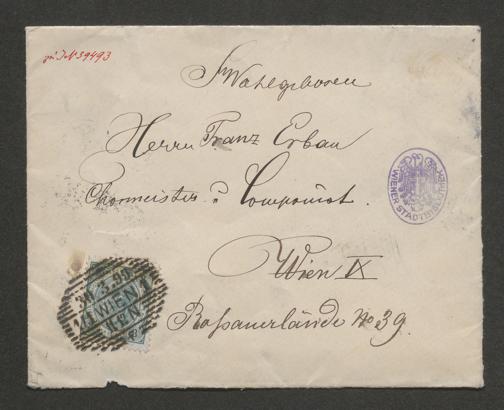 zu I.N. 39493
Sr. Wohlgeboren
Herrn Franz Erban
Chormeister & Componist.
Wien IX
Roßauerlände No 39.
WIENER STADTBIBLIOTHEK
30.3.90
WIEN